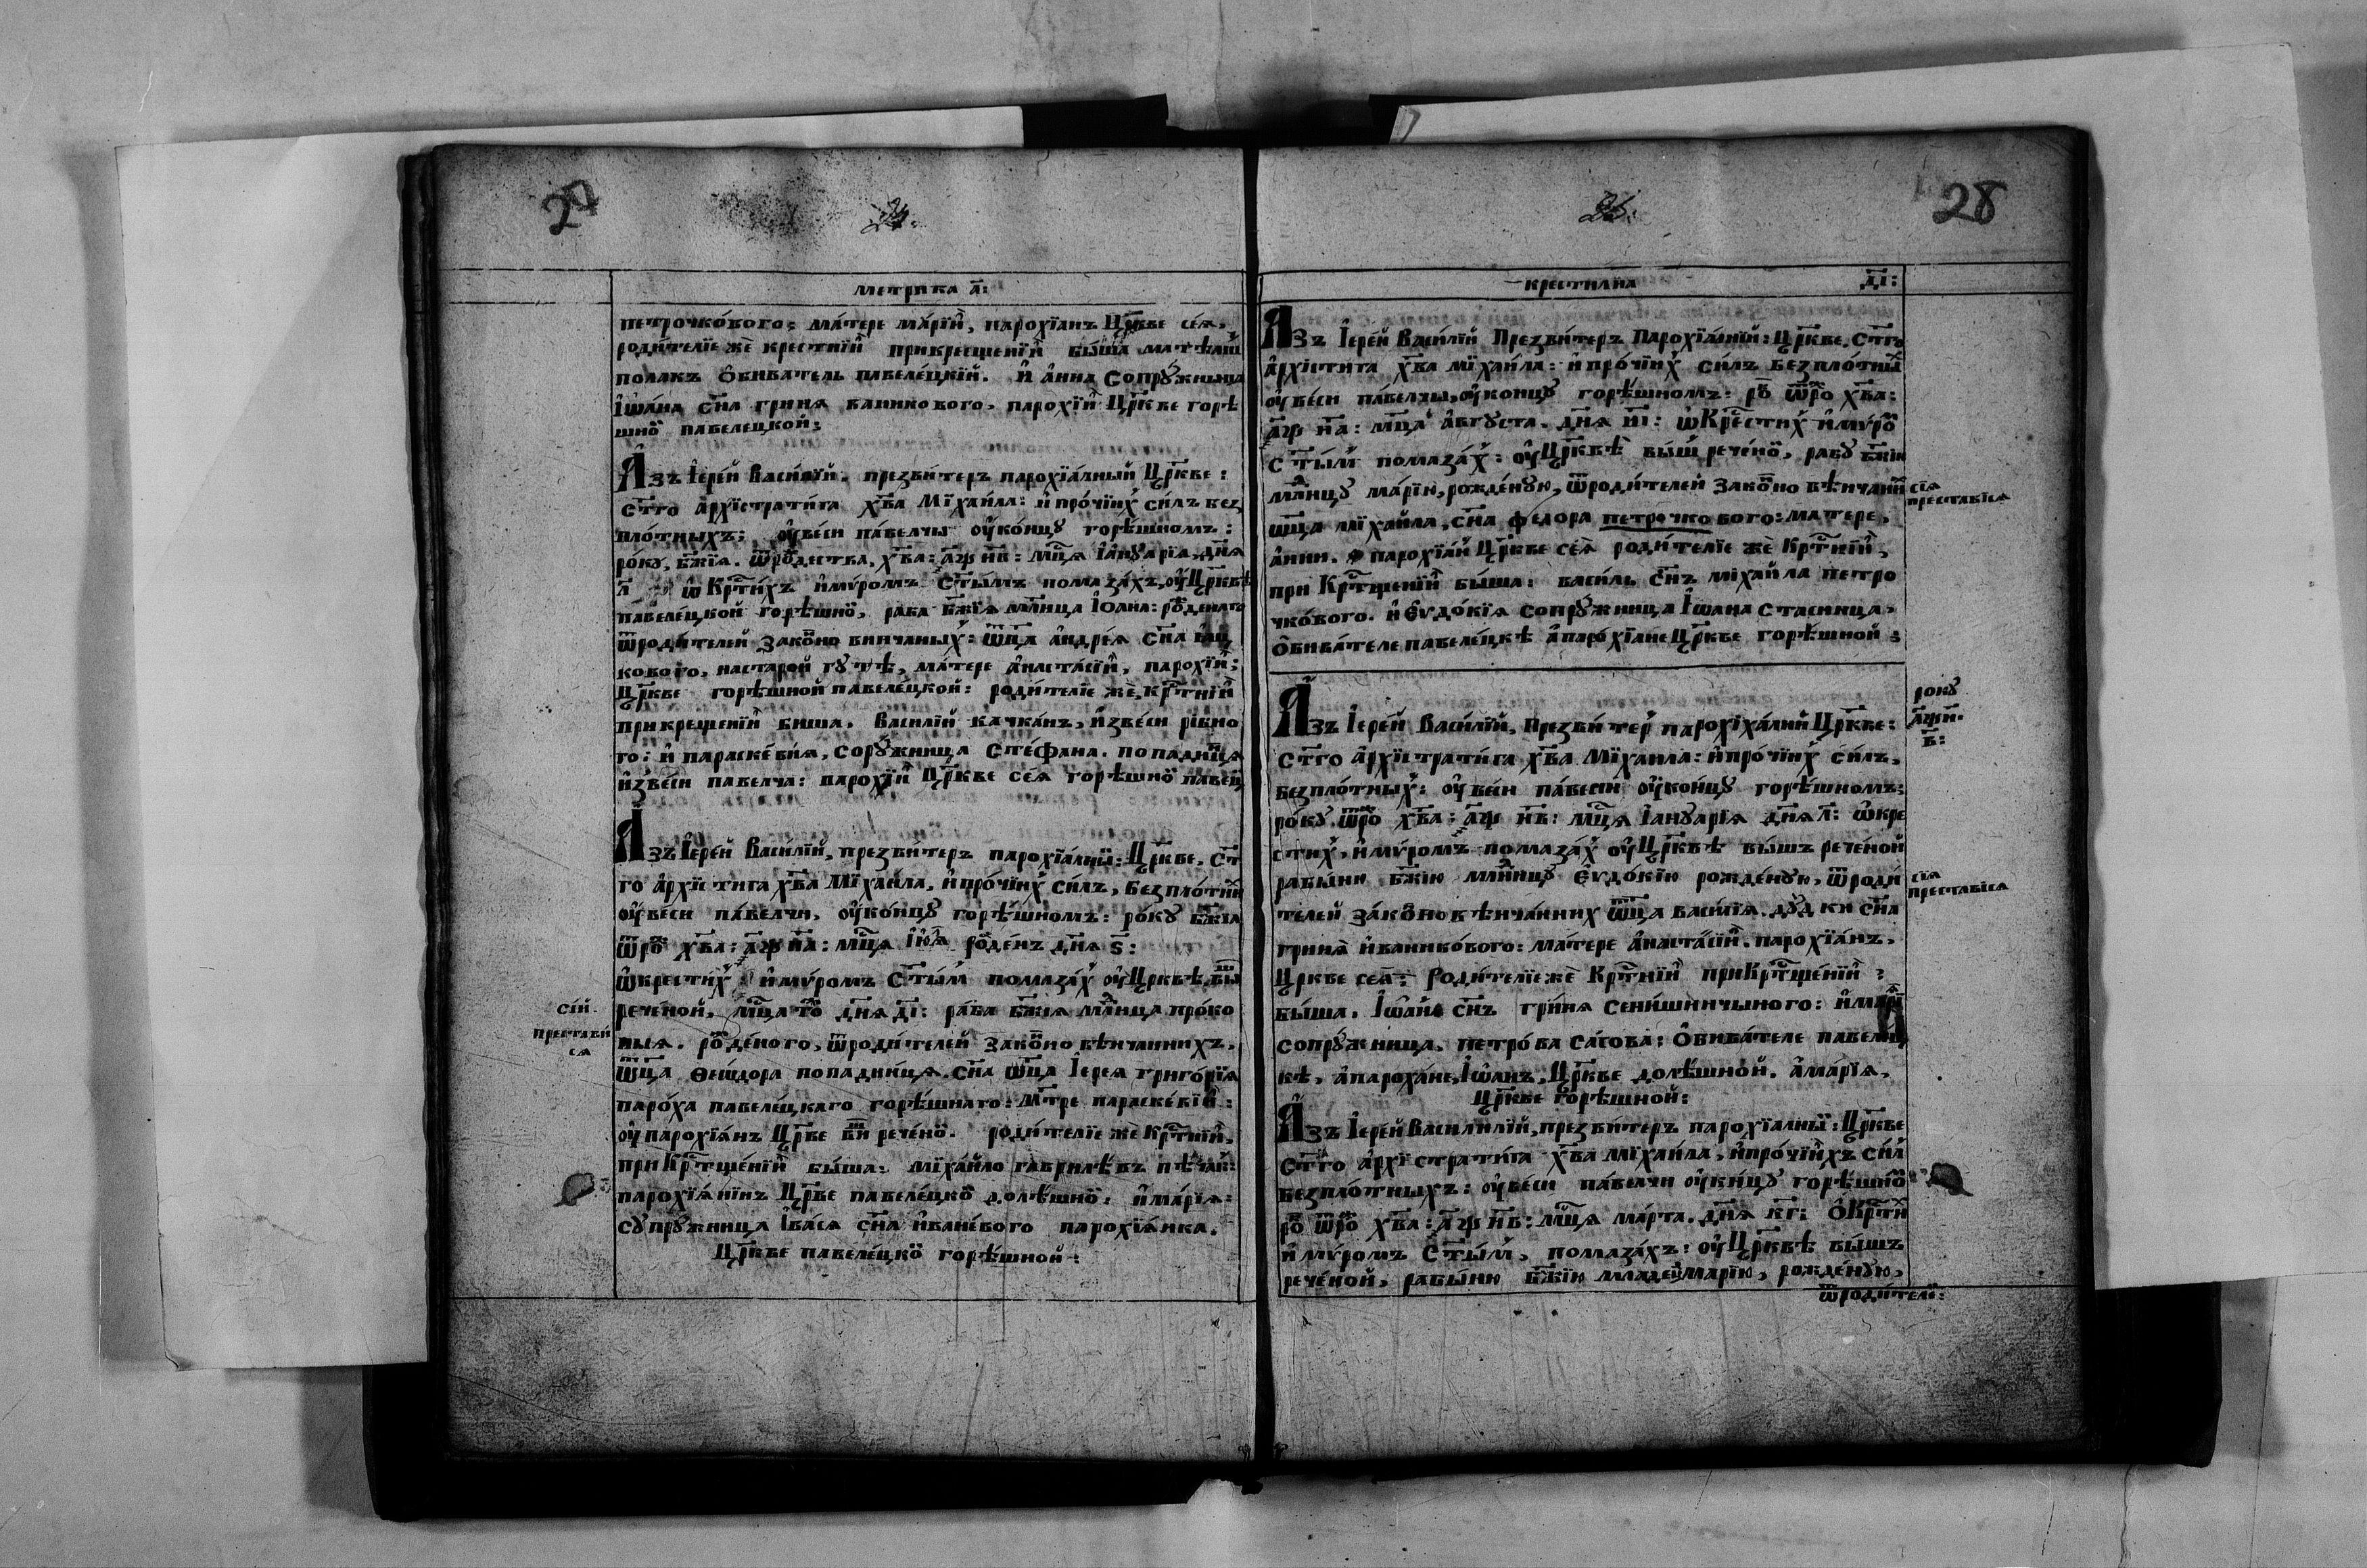 27
28
метрика а҃:
петрочко́вого: ма́тере ма́рїй, парохїанъ Цр҃кве сея̀,
роди́телїе жѐ крестнїй прикрещенїй бы́ша матѣаш
полакъ ѻ҆бива́тель павеле́цкїй. И҆ а҆нна сопрꙋ́жница
І҆ѡа́на сн҃а гриня ваникового. парохїй Цр҃кве горѣ
шно̆ павелецкой:
А҆зъ І҆ере́й Васи́лїй. презви́теръ парохїа́лный Цр҃кве:
ст҃го а҆рхїстрати́га хв҃а Мїхаи́ла: и҆ про́чїих си́лъ без
пло́тныхъ: ᲂу҆ве́си па́велчы ᲂу҆ко́нцꙋ горѣ́шномъ:
ро́кꙋ, бж҃їя. ѿродества, хв҃а: а҃ѱ н҃в: мц҃я І҆а́нꙋарїа, дн҃я
л҃ ѡ҆ Кр҃ти́хъ и҆мѵ́ромъ ст҃ы́мъ помаза́хъ, ᲂу҆Цр҃квѣ
павеле́цкой горѣ́шно̆, раба бж҃їя мл҃нца І҆ѻана: ро̆денаго
ѿроди́телей зако̆но винчаных: ѿц҃а а҆ндре́я сн҃а
кового, настарой гꙋтѣ, ма́тере а҆наста́сїй, парохїй:
Цр҃кве горѣ́шной павеле́цкой: роди́телїе жѐ, кр҃тнїй
прикрещенїй биша. Василїй качка́нъ, и҆зве́си рівно
го: и҆ параске́вия, сорꙋ́жница Сте́фана. попадиця
и҆зве́си павелча: парохїй Цр҃кве сея̀ горѣшно̆ павец
А҆зъ І҆ере́й Васи́лїй, презви́теръ парохїа́лны̆: Цр҃кве. Ст҃
го а҆рхїс тига хв҃а Мїхаи́ла, и҆про́чїих си́лъ, безпло́тнй
ᲂу҆ве́си па́велчи, ᲂу҆ко́нцꙋ горѣ́шномъ: ро́кꙋ бж҃їа
ѿро̆ хв҃а: а҃ѱ н҃а: мц҃я І҆ю́ӑ ро̆де́нъ дн҃я ѕ҃:
ѡ҆крести́х и҆мѵ́ромъ Ст҃ы́м помаза́х ᲂу҆Цр҃квѣ, вы
рече́ной, мц҃а то̆ дн҃я д҃і: ра́ба бж҃їя мл҃нца про́ко
пыя. ро̆де́ного, ѿроди́телей зако̆но вѣ́нчанних,
ѿц҃а Ѳеѡ́дора попадии́ця. сн҃а ѿц҃а І҆ерея григо́рїя
паро́ха павеле́цкаго горѣ́шнаго: мт҃ре параске́вїй:
ᲂу҆парохїа́нъ Цр҃ве вы рече́но̆. роди́телїе жѐ Кр҃тнїй,
приКр҃тще́нїй бы́ша: мїха́йло гаврилѣвъ
парохїа́нінъ Цр҃ве павеле́цко̆ долѣ́шно̆: и҆ма́рїя:
сꙋпрꙋжница І҆ва́ся сн҃а и҆ване́вого парохїа́нка.
Цр҃кве павеле́цко̆ горѣ́шной:
сїй.
престави
ся
крестилна
д҃і:
А҆зъ І҆ере́й Васи́лїй Презви́теръ Парохїа́лній: Цр҃кве. Ст҃го
а҆рхістига хв҃а мїхаи́ла: и҆ про́чїих си́лъ безпло́тны
ᲂу҆ ве́си па́велчы, ᲂу҆концꙋ горѣ́шномъ: ро̆ ѿро хв҃а:
а҃ѱ н҃а: мц҃а а҆вгꙋста. дн҃я н҃і: ѡ҆Кре́стих и҆мѵ́ро̆
ст҃ы́м помаза́х: ᲂу҆Цр҃квѣ̀ вы́ш рече́но̆, рабꙋ бж҃їю
мл҃нцꙋ ма́рїю, рожде́нꙋю, ѿроди́телей Зако̆но вѣнчанй
ѿц҃а мїхаи́ла, сн҃а федора петрочко вого: матере,
а҆нни. парохїа́й Цр҃кве се́я роди́телїе жѐ Кр҃тнїй,
при Кр҃тщенїй бы́ша: васи́ль сн҃ъ міхаи́ла петро
чко́вого. и҆ е҆ѵдо́кїя сопрꙋ́жница І҆ѡана Стасница,
ѻ҆бива́теле павеле́цкѣ а҆паро́хїане Цр҃кве горѣ́шной:
сїя
преставїся
А҆зъ І҆ере́й Васи́лїй, Презви́тер парохїха́лній Цр҃кве:
Ст҃го а҆рхїстрати́га хв҃а Мїхаила: и҆про́чїих си́лъ,
безпло́тных: ᲂу҆ ве́си па́веси ᲂу҆ко́нцꙋ горѣ́шномъ:
ро́кꙋ. ѿро хв҃а: а҃ѱ н҃в: мц҃я І҆анꙋарїя дн҃я л҃: ѡ҆кре
стих, и҆мѵ́ромъ помаза́х ᲂу҆Цр҃квѣ вы́шъ рече́ной
рабы́ню бж҃їю мл҃нцꙋ Е҆ѵдо́кїю рожде́нꙋю, ѿроди́
телей за́коно вѣнча́нних ѿц҃а васи́лїя. дꙋдки сн҃а
гриня̀ и҆ванико́вого: ма́тере а҆наста́сїй. парохїа́нъ.
Цр҃кве сея̀: Роди́телїе жѐ Кр҃тнїй приКр҃тще́нїй:
бы́ша. І҆ѡа́нъ сн҃ъ гри́ня сени́шинчыного: и҆мар
сопрꙋ́жница, петро́ва са́сова: ѻ҆бива́теле павелец
кѣ, а҆пароха́не, І҆ѡанъ, Цр҃кве долѣ́шной. а҆ма́рїя,
Цр҃кве горѣ́шной:
рокꙋ
а҃ѱн.
в҃:
сїя
преставїся
А҆зъ І҆ере́й Василилїй, презви́теръ парохїалны̆: Цр҃кве
Ст҃го а҆рхїстрати́га хв҃а Мїхаи́ла, и҆про́чїихъ си́л
безпло́тныхъ: ᲂу҆ве́си па́велчи ᲂу҆ки́цꙋ горѣ́шно̆
ро̆ ѿро̆ хв҃а: а҃ѱ н҃в: мц҃я ма́рта. дн҃я к҃г: ѻ҆Кр҃ти
и҆мѵ́ромъ Ст҃ы́м, помаза́хъ: ᲂу҆Цр҃квѣ вы́шъ
рече́ной, рабы́ню бж҃їю младецмарїю, рожде́нꙋю,
ѿроди́телӗ: